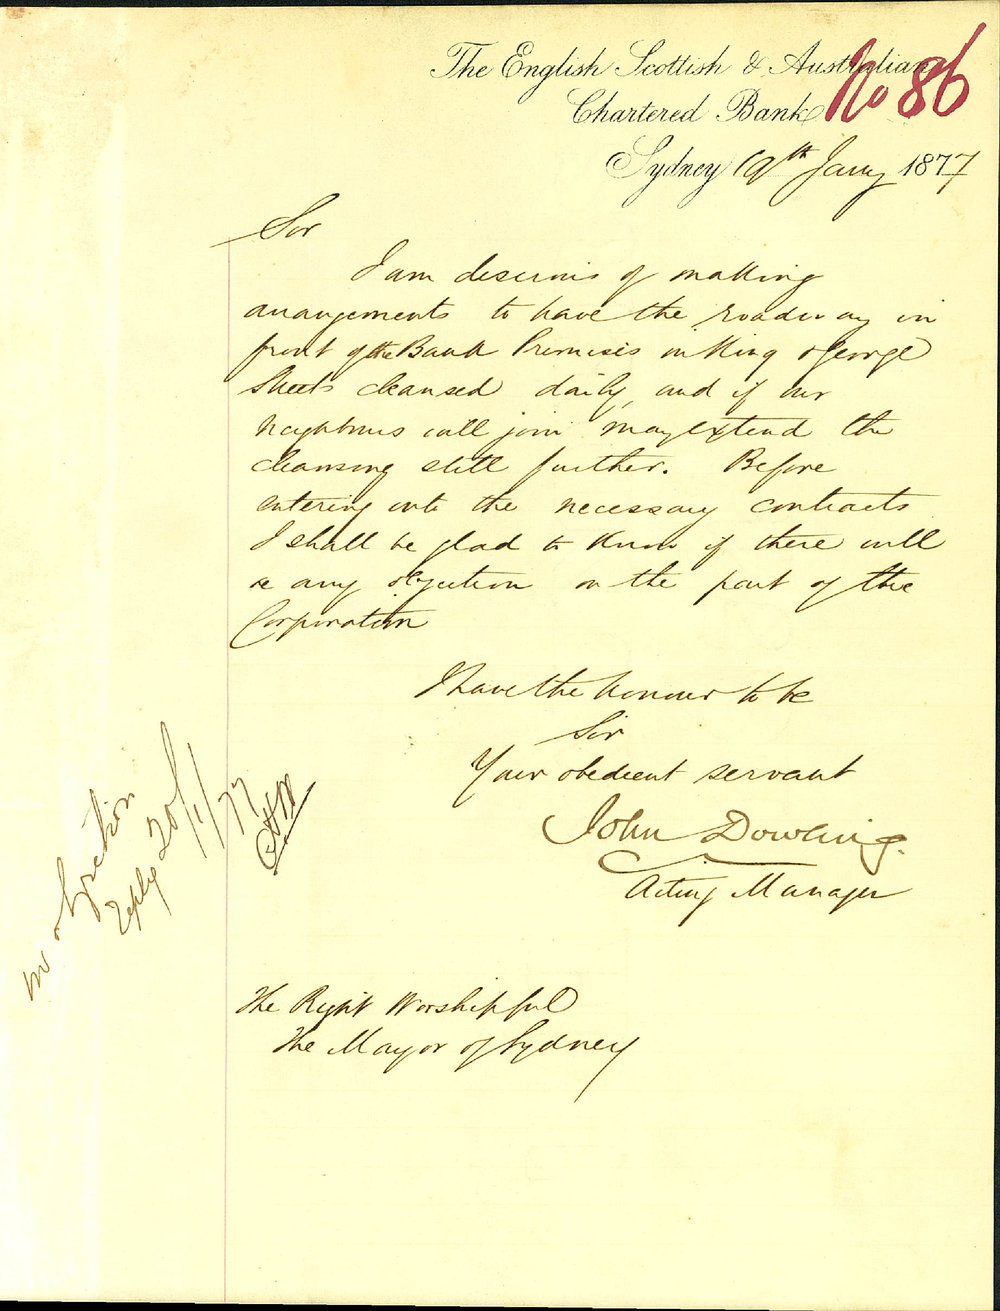 The English Scottish & Australian
Chartered Bank
No 86
Sydney 19th Jany 1877
Sir
I am desirous of making
arrangements to have the roadway in
front of the Bank Premises in King & George
Streets cleansed daily, and if our
neighbours will join may extend the
cleansing still further. Before
entering into the necessary contracts
I shall be glad to know if there will
be any objection on the part of the
Corporation
I have the honour to be
Sir
Your obedient servant
John Dowling.
Acting Manager
no objection
reply 20/1/77
The Right Worshipful
The Mayor of Sydney